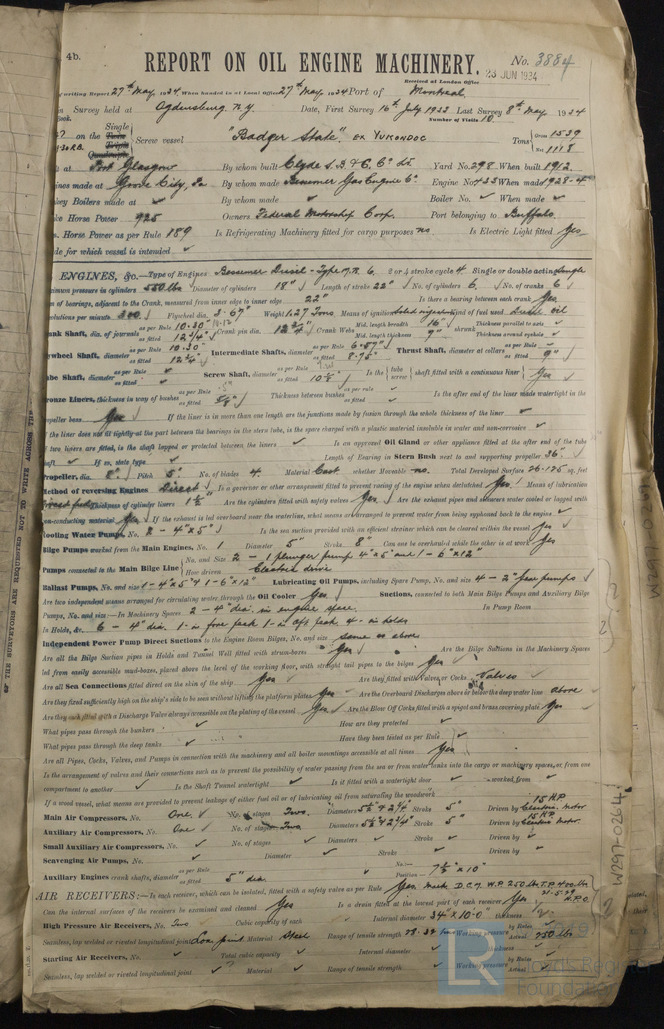 4b.
REPORT ON OIL ENGINE MACHINERY.
No. 3884
Received at London Office
23 JUN 1934
writing Report 27th May 1934 When handed in at Local Office 27th May 1934 Port of Montreal
in Survey held at Ogdensburg N.Y Date, First Survey 16th July 1933 Last Survey 8th May 1934
Number of Visits 10
on the Single Twin Triple Quadruple Screw vessel "Badger State". EX YUKONDOC Tons Gross 1539 Net 1118
at Port Glasgow By whom built Clyde S.B. & E. Co Ld. Yard No. 298 When built 1912
Engines made at Grove City, Pa By whom made Bessemer Gas Engine Co Engine No. 433 When made 1928-4
Boilers made at ✓ By whom made ✓ Boiler No. ✓ When made ✓
Horse Power 925 Owners Federal Motorship Corp. Port belonging to Buffalo
Horse Power as per Rule 189 Is Refrigerating Machinery fitted for cargo purposes no Is Electric Light fitted Yes
for which vessel is intended ✓
ENGINES, &c.—Type of Engines Bessemer Diesel - Type 2 or 4 stroke cycle 4 Single or double acting Single
maximum pressure in cylinders 550 lbs Diameter of cylinders 18" Length of stroke 22" No. of cylinders 6 No. of cranks 6
of bearings, adjacent to the Crank, measured from inner edge to inner edge 22" Is there a bearing between each crank Yes
Revolutions per minute 200 Flywheel dia. Weight 1.27 Tons Means of ignition Solid injection Kind of fuel used Diesel oil
Crank Shaft, dia. of journals as per Rule 10.30" as fitted 12¾" Crank pin dia. 12¾" Crank Webs Mid. length breadth 16" Mid. length thickness 9" shrunk Thickness parallel to axis ✓ Thickness around eyehole ✓
Flywheel Shaft, diameter as per Rule 10.30 as fitted 12¾" Intermediate Shafts, diameter as per Rule 6.57" as fitted 8.75" Thrust Shaft, diameter at collars as per Rule as fitted 9"
Tube Shaft, diameter as per Rule as fitted ✓ Screw Shaft, diameter as per Rule as fitted Is the tube screw shaft fitted with a continuous liner Yes
Bronze Liners, thickness in way of bushes as per Rule as fitted Thickness between bushes as per rule as fitted ✓ Is the after end of the liner made watertight in the
propeller boss Yes If the liner is in more than one length are the junctions made by fusion through the whole thickness of the liner ✓
If the liner does not fit tightly at the part between the bearings in the stern tube, is the space charged with a plastic material insoluble in water and non-corrosive ✓
If two liners are fitted, is the shaft lapped or protected between the liners ✓ Is an approved Oil Gland or other appliance fitted at the after end of the tube
shaft ✓ If so, state type ✓ Length of Bearing in Stern Bush next to and supporting propeller 36"
Propeller, dia. 8" Pitch 5" No. of blades 4 Material Cast whether Moveable no. Total Developed Surface 26.125 sq. feet
Method of reversing Engines Direct Is a governor or other arrangement fitted to prevent racing of the engine when declutched Yes Means of lubrication
Forced feed Thickness of cylinder liners Are the cylinders fitted with safety valves Yes Are the exhaust pipes and silencers water cooled or lagged with
non-conducting material Yes If the exhaust is led overboard near the waterline, what means are arranged to prevent water from being syphoned back to the engine ✓
Cooling Water Pumps, No. 2 - 4" x 5" Is the sea suction provided with an efficient strainer which can be cleared within the vessel Yes
Bilge Pumps worked from the Main Engines, No. 1 Diameter 5" Stroke 8" Can one be overhauled while the other is at work Yes
Pumps connected to the Main Bilge Line No. and Size 2 - 1 plunger pump 4" x 5" and 1 - 6" x 12"
How driven Electric drive
Ballast Pumps, No. and size 1 - 4" x 5" & 1 - 6" x 12" Lubricating Oil Pumps, including Spare Pump, No. and size 4 - 2" pumps
Are two independent means arranged for circulating water through the Oil Cooler Yes Suctions, connected to both Main Bilge Pumps and Auxiliary Bilge
Pumps, No. and size:—In Machinery Spaces 2 - 4" dia. in engine space. In Pump Room
In Holds, &c. 6 - 4" dia. 1 - in fore peak 1 - in aft peak 4 - in holds
Independent Power Pump Direct Suctions to the Engine Room Bilges, No. and size same as above
Are all the Bilge Suction pipes in Holds and Tunnel Well fitted with strum-boxes Yes Are the Bilge Suctions in the Machinery Spaces
led from easily accessible mud-boxes, placed above the level of the working floor, with straight tail pipes to the bilges Yes
Are all Sea Connections fitted direct on the skin of the ship Yes Are they fitted with Valves or Cocks Valves
Are they fixed sufficiently high on the ship's side to be seen without lifting the platform plates Yes Are the Overboard Discharges above or below the deep water line above
Are they each fitted with a Discharge Valve always accessible on the plating of the vessel Yes Are the Blow Off Cocks fitted with a spigot and brass covering plate Yes
What pipes pass through the bunkers ✓ How are they protected ✓
What pipes pass through the deep tanks ✓ Have they been tested as per Rule ✓
Are all Pipes, Cocks, Valves, and Pumps in connection with the machinery and all boiler mountings accessible at all times Yes
Is the arrangement of valves and their connections such as to prevent the possibility of water passing from the sea or from water tanks into the cargo or machinery spaces, or from one
compartment to another ✓ Is the Shaft Tunnel watertight ✓ Is it fitted with a watertight door ✓ worked from ✓
If a wood vessel, what means are provided to prevent leakage of either fuel oil or of lubricating oil from saturating the woodwork
Main Air Compressors, No. One No. of stages Two. Diameters 5½" & 2¼" Stroke 5" Driven by 15 H.P. Electric Motor
Auxiliary Air Compressors, No. One No. of stages Two Diameters 5½" & 2¼" Stroke 5" Driven by 15 H.P. Electric Motor.
Small Auxiliary Air Compressors, No. ✓ No. of stages ✓ Diameters ✓ Stroke ✓ Driven by ✓
Scavenging Air Pumps, No. ✓ Diameter ✓ Stroke ✓ Driven by ✓
Auxiliary Engines crank shafts, diameter as per Rule as fitted 5" dia No. Position 7½" x 10"
AIR RECEIVERS:—Is each receiver, which can be isolated, fitted with a safety valve as per Rule Yes. Mark D.C.7. W.P. 250 lbs T.P. 400 lbs
Can the internal surfaces of the receivers be examined and cleaned Yes Is a drain fitted at the lowest part of each receiver Yes
High Pressure Air Receivers, No. Two Cubic capacity of each Internal diameter 34" x 10-0 thickness
Seamless, lap welded or riveted longitudinal joint Material Steel Range of tensile strength Working pressure by Rules Actual 250 lbs
Starting Air Receivers, No. ✓ Total cubic capacity ✓ Internal diameter ✓ thickness
Seamless, lap welded or riveted longitudinal joint ✓ Material ✓ Range of tensile strength ✓ Working pressure by Rules Actual ✓
OF THE SURVEYORS ARE REQUESTED NOT TO WRITE ACROSS THE
W297-0264
LR
Lloyd's Register
Foundation